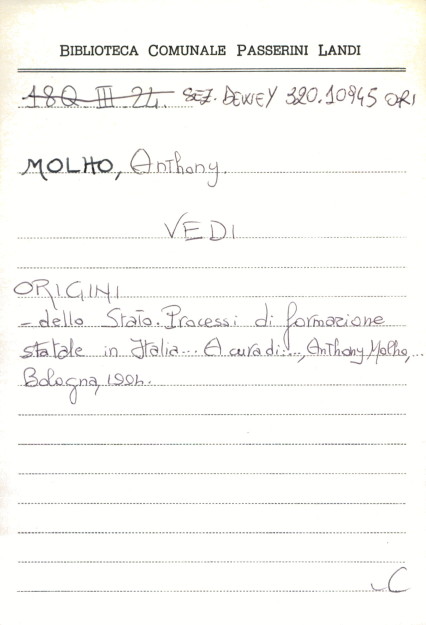 BIBLIOTECA COMUNALE PASSERINI LANDI
18Q III 24. SEZ. DEWEY 320.10945 ORI
MOLHO, Anthony.
VEDI
ORIGINI
- dello Stato. Processi di formazione
statale in Italia... A cura di..., Anthony Molho,...
Bologna, 1994.
C